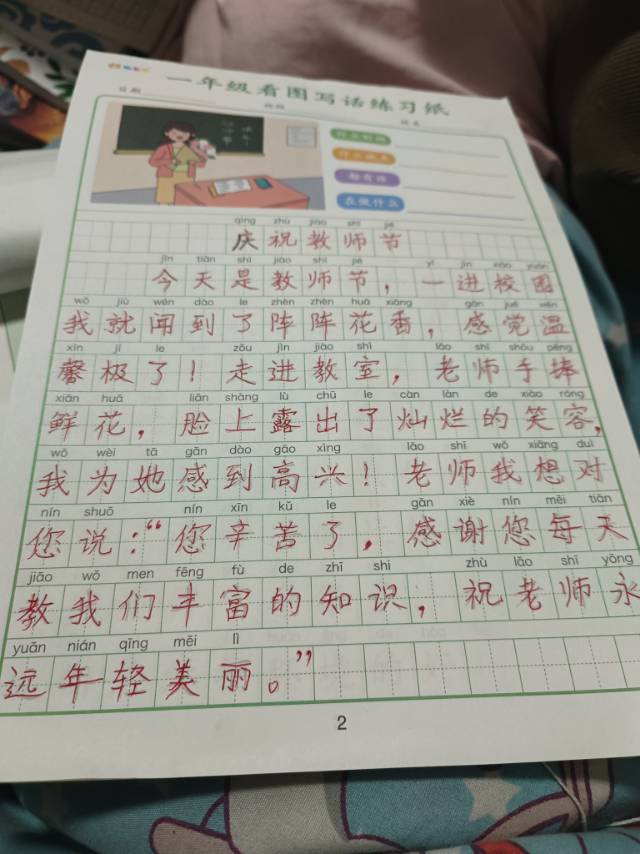 一年级看图写话练习纸
日期
什么时间
什么地点
都有谁
在做什么
qìng zhù jiào shī jié
庆祝教师节
jīn tiān shì jiào shī jié yí jìn xiào yuán
今天是教师节，一进校园
wǒ jiù wén dào le zhèn zhèn huā xiāng gǎn jué wēn
我就闻到了阵阵花香，感觉温
xīn jí le zǒu jìn jiào shì lǎo shī shǒu pěng
馨极了！走进教室，老师手捧
xiān huā liǎn shàng lù chū le càn làn de xiào róng
鲜花，脸上露出了灿烂的笑容，
wǒ wèi tā gǎn dào gāo xìng lǎo shī wǒ xiǎng duì
我为她感到高兴！老师我想对
nín shuō nín xīn kǔ le gǎn xiè nín měi tiān
您说：“您辛苦了，感谢您每天
jiāo wǒ men fēng fù de zhī shi zhù lǎo shī yǒng
教我们丰富的知识，祝老师永
yuǎn nián qīng měi lì
远年轻美丽。”
2